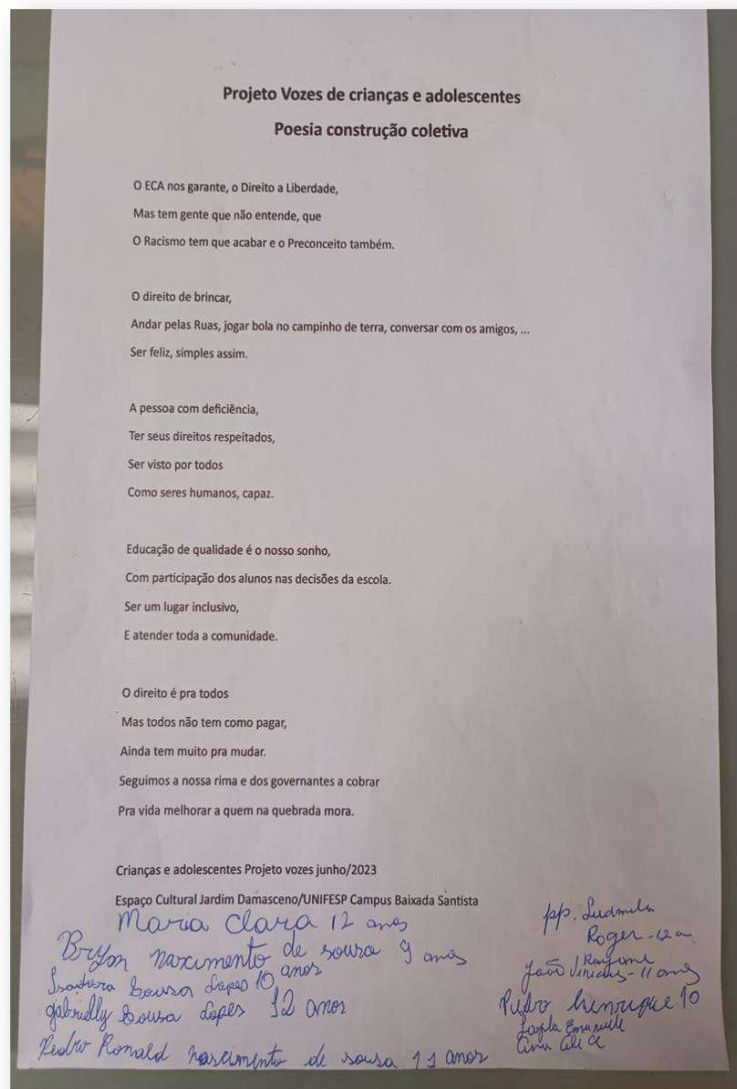 Projeto Vozes de crianças e adolescentes
Poesia construção coletiva
O ECA nos garante, o Direito a Liberdade,
Mas tem gente que não entende, que
O Racismo tem que acabar e o Preconceito também.
O direito de brincar,
Andar pelas Ruas, jogar bola no campinho de terra, conversar com os amigos, ...
Ser feliz, simples assim.
A pessoa com deficiência,
Ter seus direitos respeitados,
Ser visto por todos
Como seres humanos, capaz.
Educação de qualidade é o nosso sonho,
Com participação dos alunos nas decisões da escola.
Ser um lugar inclusivo,
E atender toda a comunidade.
O direito é pra todos
Mas todos não tem como pagar,
Ainda tem muito pra mudar.
Seguimos a nossa rima e dos governantes a cobrar
Pra vida melhorar a quem na quebrada mora.
Crianças e adolescentes Projeto vozes junho/2023
Espaço Cultural Jardim Damasceno/UNIFESP Campus Baixada Santista
Maria Clara 12 anos
nascimento de sousa 9 anos
Sousa Lopes 10 anos
gabrielly Sousa Lopes 12 anos
Pedro Ronald nascimento de sousa 11 anos
pp. Ludmila
Roger
João Vinicius - 11 anos
Pedro henrique 10
Emanuelle